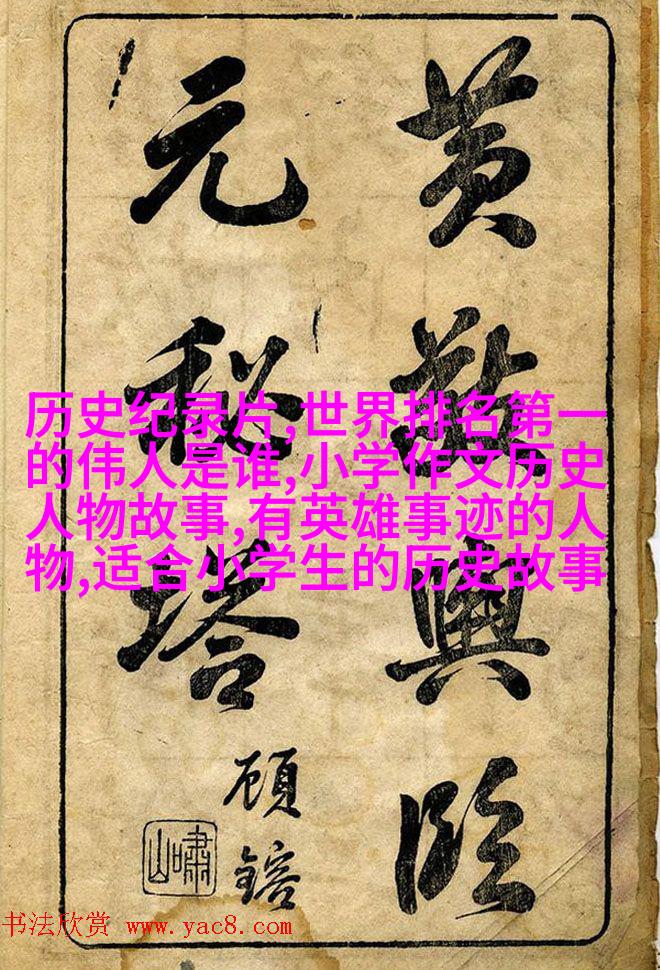 黄敬輿臨
元秘塔
顧鎔
嘯山
历史纪录片,世界排名第一
的伟人是谁,小学作文历史
人物故事,有英雄事迹的人
物,适合小学生的历史故事
书法欣赏 www.yac8.com